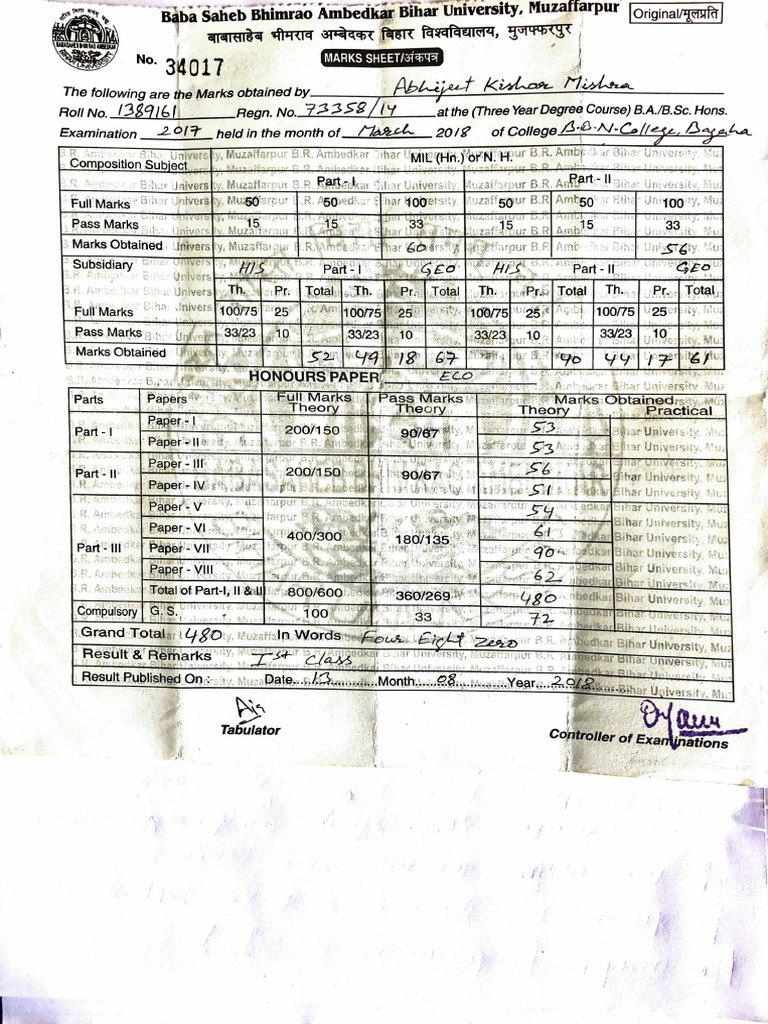 Baba Saheb Bhimrao Ambedkar Bihar University, Muzaffarpur
Original/मूलप्रति
बाबासाहेब भीमराव अम्बेदकर बिहार विश्वविद्यालय, मुजफ्फरपुर
No. 34017
MARKS SHEET/अंकपत्र
The following are the Marks obtained by Abhijeet Kishor Mishra
Roll No. 1389161 Regn. No. 73358/14 at the (Three Year Degree Course) B.A./B.Sc. Hons.
Examination 2017 held in the month of March 2018 of College B.B.N. College, Bagaha
Composition Subject MIL (Hn.) or N. H.
Part - I Part - II
Full Marks 50 50 100 50 50 100
Pass Marks 15 15 33 15 15 33
Marks Obtained 60 56
Subsidiary HIS Part - I GEO HIS Part - II GEO
Th. Pr. Total Th. Pr. Total Th. Pr. Total Th. Pr. Total
Full Marks 100/75 25 100/75 25 100/75 25 100/75 25
Pass Marks 33/23 10 33/23 10 33/23 10 33/23 10
Marks Obtained 52 49 18 67 40 44 17 61
HONOURS PAPER ECO
Parts Papers Full Marks Theory Pass Marks Theory Marks Obtained
Theory Practical
Part - I Paper - I 200/150 90/67 53
Paper - II 53
Part - II Paper - III 200/150 90/67 56
Paper - IV 51
Part - III Paper - V 400/300 180/135 54
Paper - VI 61
Paper - VII 90
Paper - VIII 62
Total of Part-I, II & III 800/600 360/269 480
Compulsory G. S. 100 33 72
Grand Total 480 In Words Four Eight Zero
Result & Remarks Ist class
Result Published On : Date 13 Month 08 Year 2018
Tabulator
Controller of Examinations